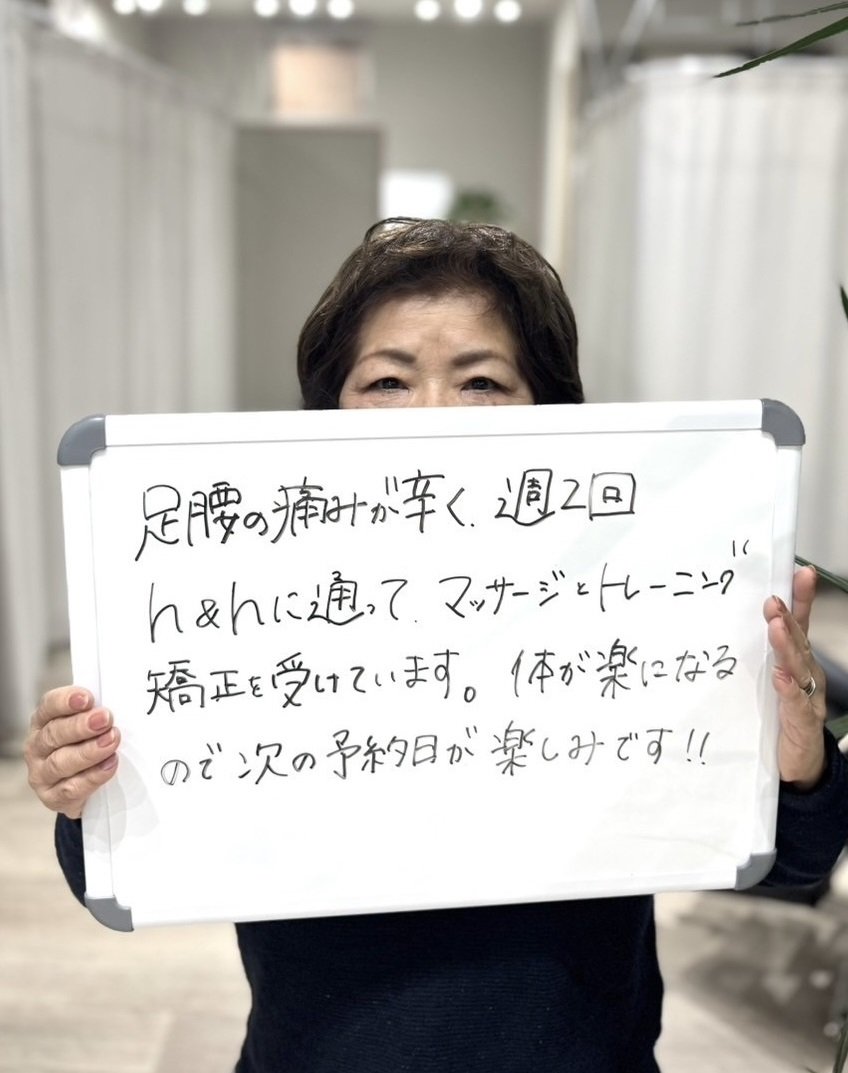 足腰の痛みが辛く、週2回
h&hに通って、マッサージとトレーニング
矯正を受けています。体が楽になる
ので次の予約日が楽しみです!!